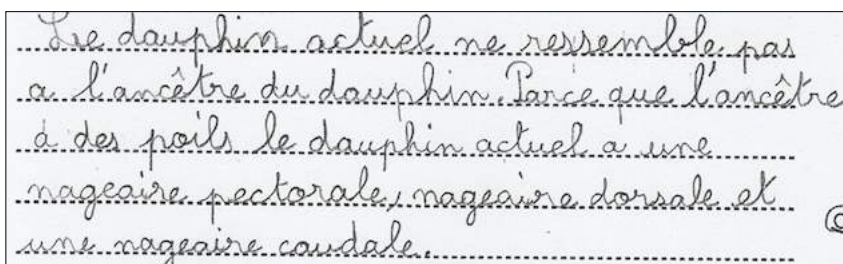 Le dauphin actuel ne ressemble pas
a l'ancêtre du dauphin. Parce que l'ancêtre
à des poils le dauphin actuel a une
nageaire pectorale, nageaire dorsale et
une nageaire caudale.